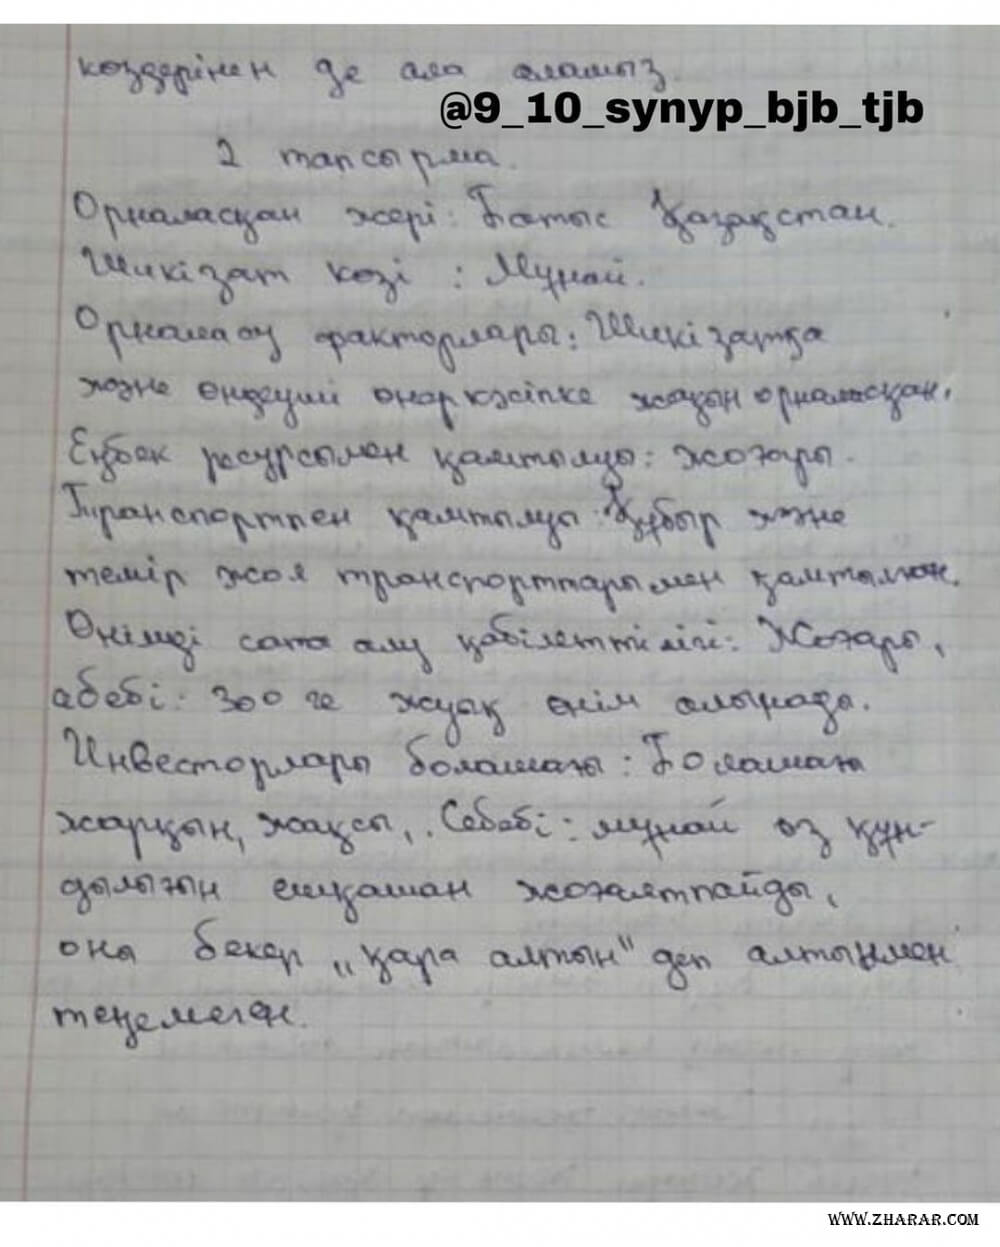 көздерінен де ала аламыз
@9_10_synyp_bjb_tjb
2 тапсырма.
Орналасқан жері: Батыс Қазақстан.
Шикізат көзі : Мұнай.
Орналасу факторлары: Шикізатқа
және өңдеуші өнеркәсіпке жақын орналасқан.
Еңбек ресурсымен қамтылуы: жоғары.
Транспортпен қамтылуы: Құбыр және
темір жол транспорттарымен қамтылған.
Өнімді сата алу қабілеттілігі: Жоғары,
себебі: 300 ге жуық өнім алынады.
Инвесторлары болашағы : Болашағы
жарқын, жақсы, . Себебі: мұнай өз құн-
дылығын ешқашан жоғалтпайды,
оны бекер "қара алтын" деп алтынмен
теңемеген.
WWW.ZHARAR.COM